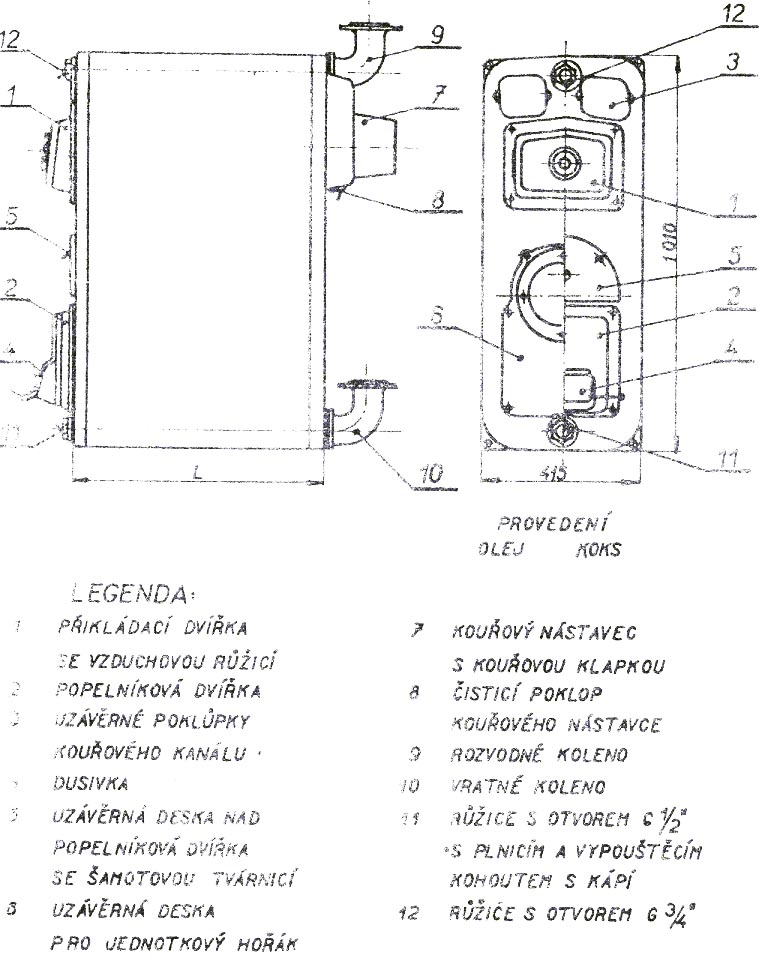 12
9
12
3
1
7
5
8
1
1010
5
2
6
2
4
4
11
L
10
415
11
PROVEDENÍ
OLEJ KOKS
LEGENDA:
1 PŘIKLÁDACÍ DVÍŘKA
SE VZDUCHOVOU RŮŽICÍ
2 POPELNÍKOVÁ DVÍŘKA
3 UZÁVĚRNÉ POKLŮPKY
KOUŘOVÉHO KANÁLU
4 DUSIVKA
5 UZÁVĚRNÁ DESKA NAD
POPELNÍKOVÁ DVÍŘKA
SE ŠAMOTOVOU TVÁRNICÍ
6 UZÁVĚRNÁ DESKA
PRO JEDNOTKOVÝ HOŘÁK
7 KOUŘOVÝ NÁSTAVEC
S KOUŘOVOU KLAPKOU
8 ČISTICÍ POKLOP
KOUŘOVÉHO NÁSTAVCE
9 ROZVODNÉ KOLENO
10 VRATNÉ KOLENO
11 RŮŽICE S OTVOREM G 1/2"
S PLNICÍM A VYPOUŠTĚCÍM
KOHOUTEM S KÁPÍ
12 RŮŽICE S OTVOREM G 3/4"